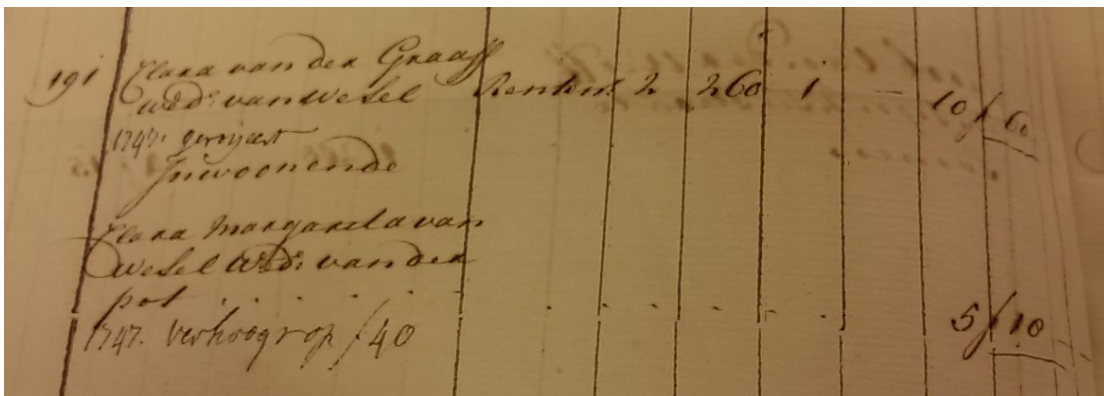 191 Clara van der Graaff
wed: van Wesel Rentenr 2 260 1 — 10 ƒ 60
1747. geroijeert
Inwoonende
Clara Margareta van
Wesel Wed: van der
pot . . . . . . . . . . 5 ƒ 10
1747. verhoogt op ƒ 40